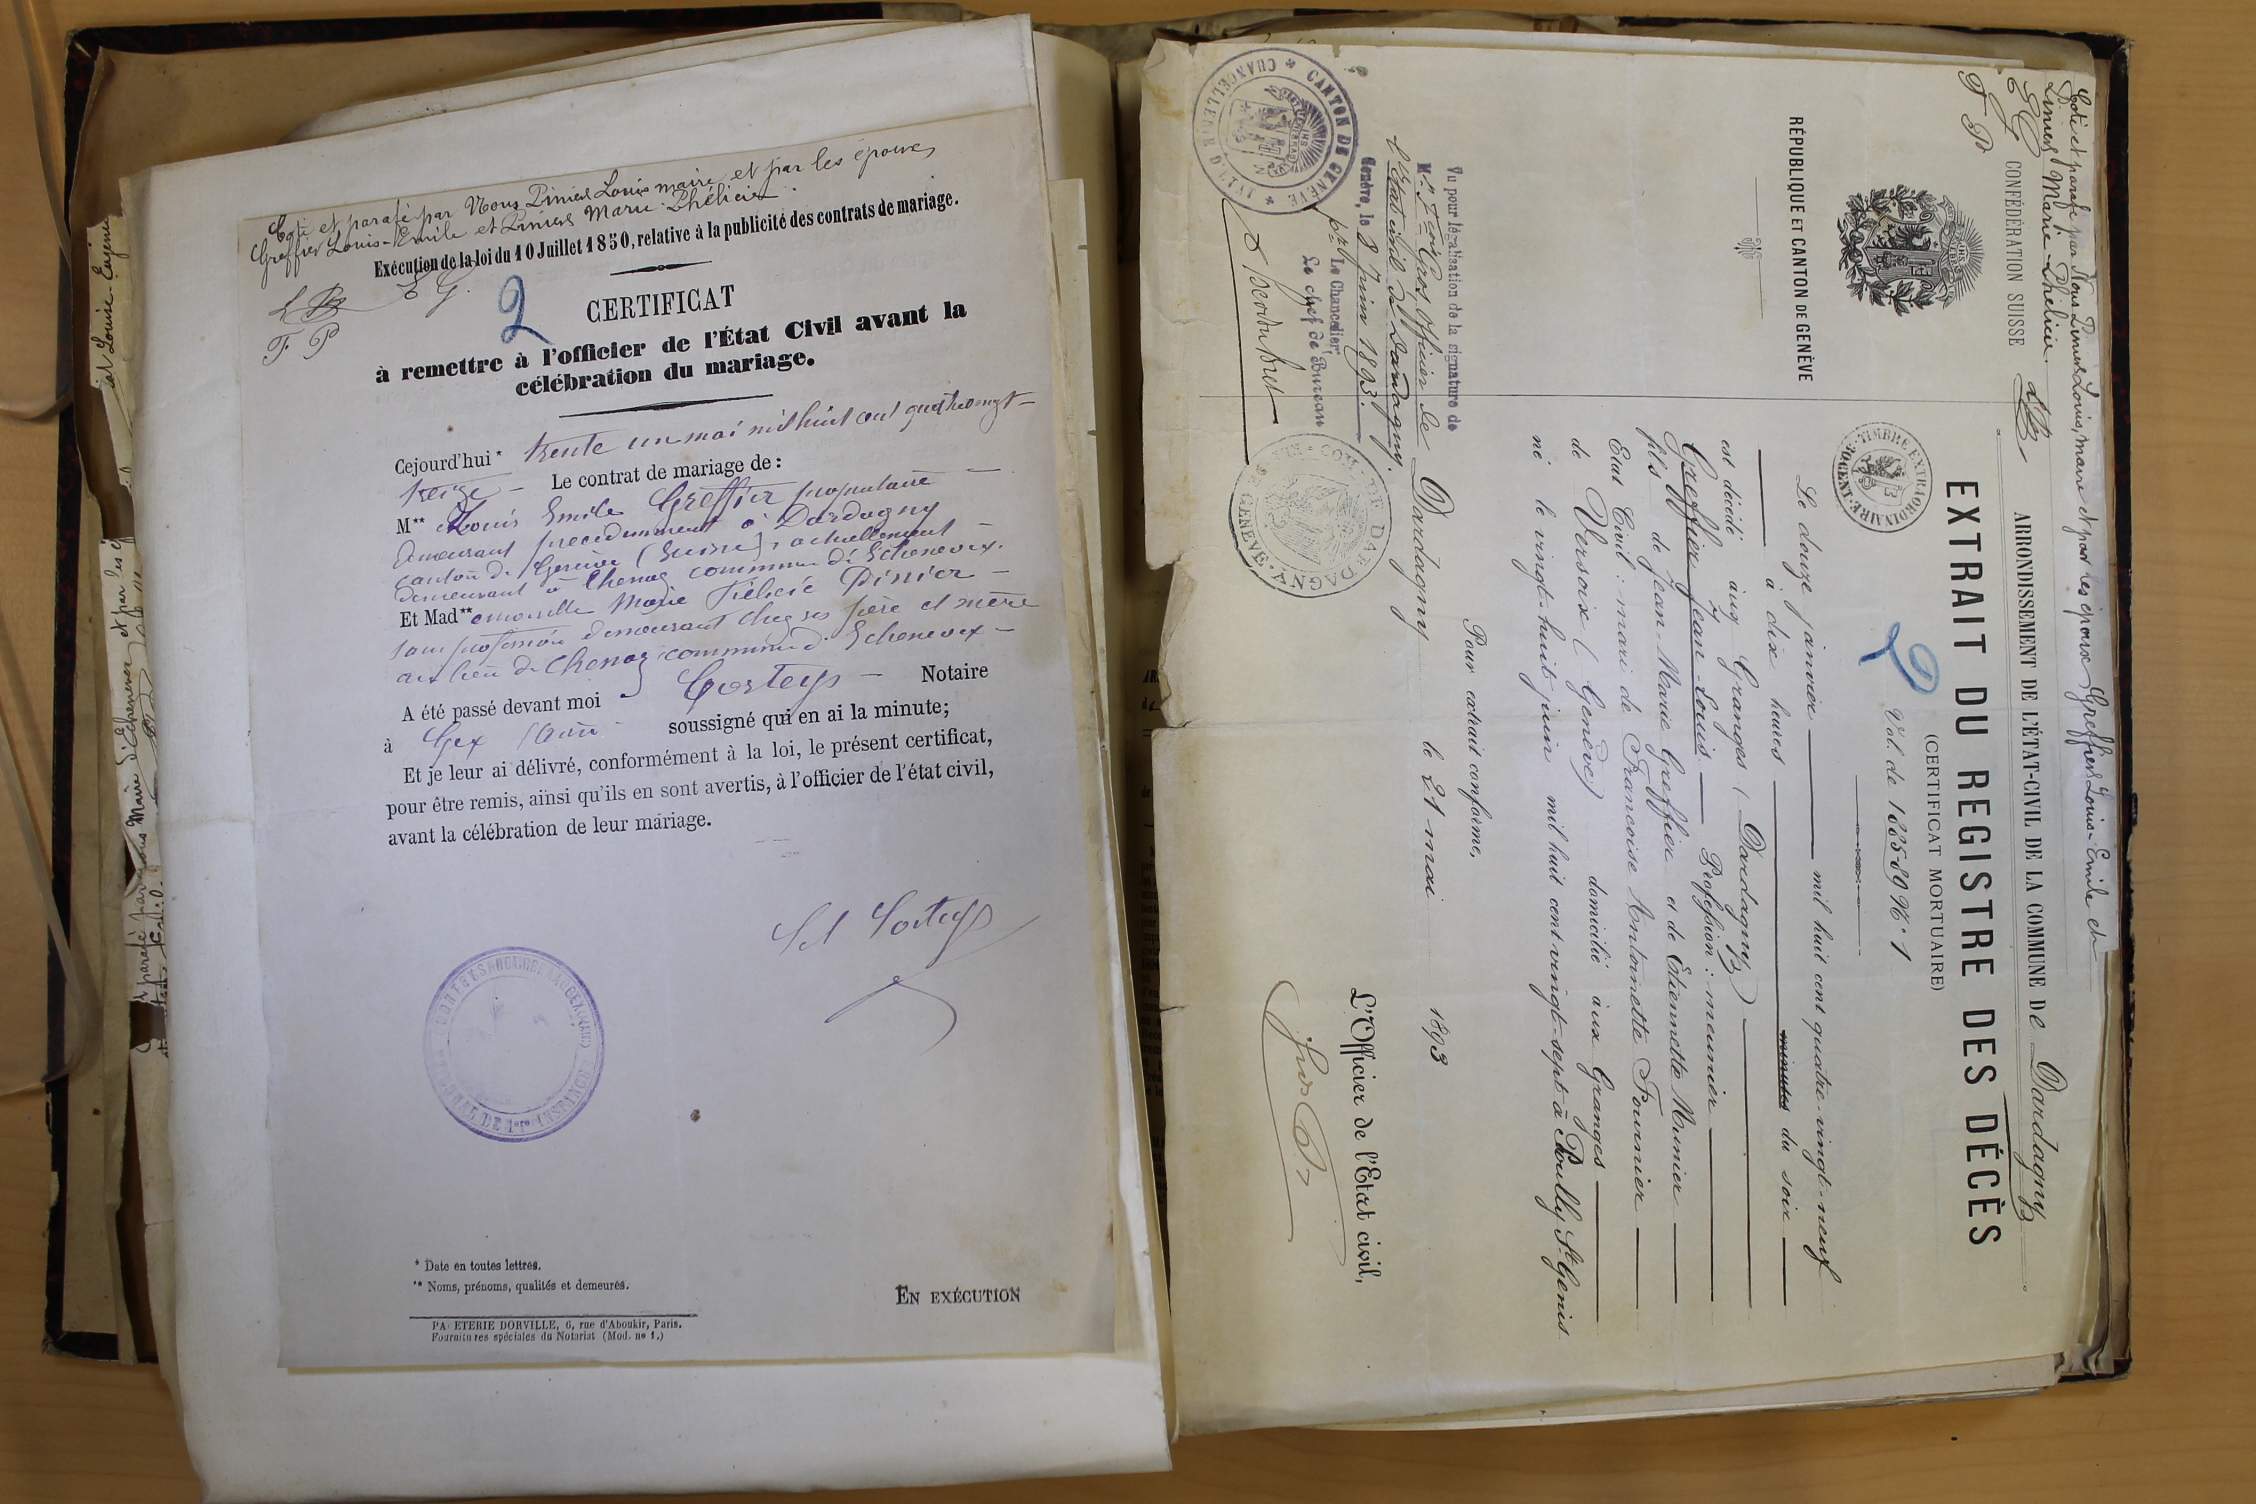 Coté et parafé par Nous Piniers Louis maire et par les époux
Greffier Louis-Emile et Piniers Marie-Phélicie.
Exécution de la loi du 10 Juillet 1850, relative à la publicité des contrats de mariage.
E G.
F P
2
CERTIFICAT
à remettre à l'officier de l'État Civil avant la
célébration du mariage.
Cejourd'hui * trente un mai mil huit cent quatre vingt-
treize - Le contrat de mariage de :
M** Louis Emile Greffier propriétaire
demeurant précédemment à Dardagny
canton de Genève (Suisse), actuellement
demeurant à Chenaz commune d'Echenevex.
Et Mad** emoiselle Marie Félicie Pinier
sans profession demeurant chez ses père et mère
au lieu de Chenaz commune d'Echenevex -
A été passé devant moi Corteys - Notaire
à Gex (Ain) soussigné qui en ai la minute;
Et je leur ai délivré, conformément à la loi, le présent certificat,
pour être remis, ainsi qu'ils en sont avertis, à l'officier de l'état civil,
avant la célébration de leur mariage.
* Date en toutes lettres.
** Noms, prénoms, qualités et demeures.
EN EXÉCUTION
PA ETERIE DORVILLE, 6, rue d'Aboukir, Paris.
Fournitures spéciales du Notariat (Mod. no 1.)
Coté et parafé par Nous Piniers Louis, maire et par les époux Greffier Louis-Emile et
Piniers Marie-Phélicie.
E G
F P
CONFÉDÉRATION SUISSE
RÉPUBLIQUE ET CANTON DE GENÈVE
ARRONDISSEMENT DE L'ÉTAT-CIVIL DE LA COMMUNE DE Dardagny
EXTRAIT DU REGISTRE DES DÉCÈS
(CERTIFICAT MORTUAIRE)
2
Vol. de 1885-89 No. 1
TIMBRE EXTRAORDINAIRE
Le douze janvier mil huit cent quatre-vingt-neuf
à dix heures minutes du soir
est décédé aux Granges (Dardagny)
Greffier Jean-Louis Profession : meunier
fils de Jean-Marie Greffier et de Etiennette Munier
Etat Civil : mari de Françoise Antoinette Fournier
de Versoix (Genève) domicilié aux Granges
né le vingt-huit juin mil huit cent vingt-sept à Pouilly St. Genis
Pour extrait conforme,
Dardagny le 21 mai 1893
L'Officier de l'Etat civil,
Vu pour légalisation de la signature de
Mr. Gros, Officier de
l'Etat civil de Dardagny.
Genève, le 8 Juin 1893.
pr. Le Chancelier,
Le chef de Bureau
CANTON DE GENÈVE
CHANCELLERIE D'ETAT